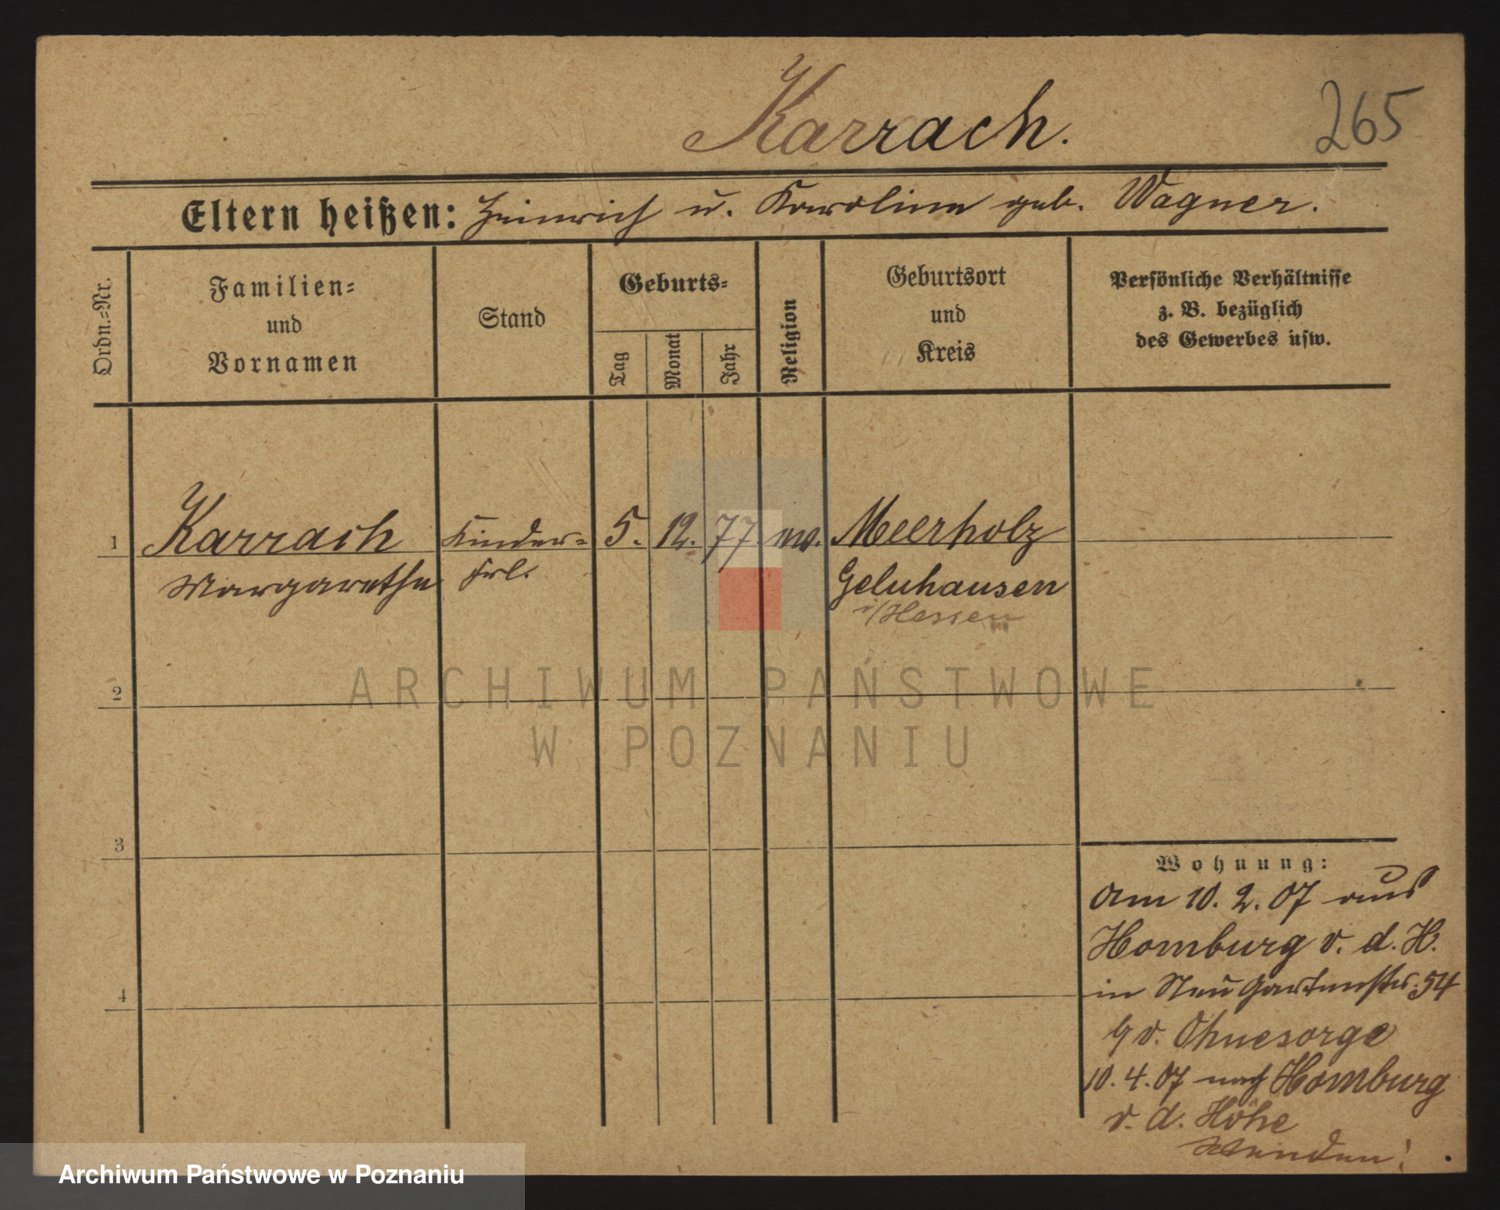 Karrach.
265
Eltern heißen: Heinrich u. Karoline geb. Wagner.
Ordn.=Nr.
Familien=
und
Vornamen
Stand
Geburts=
Tag
Monat
Jahr
Religion
Geburtsort
und
Kreis
Persönliche Verhältnisse
z. B. bezüglich
des Gewerbes usw.
1
Karrach
Margarethe
Kinder=
Frl.
5.
12.
77
ev.
Meerholz
Gelnhausen
i/Hessen
2
3
4
Wohnung:
Am 10. 2. 07 aus
Homburg v. d. H.
in Neu Gartenstr. 54
b/ v. Ohnesorge
10. 4. 07 nach Homburg
v. d. Höhe
Wenden!
ARCHIWUM PAŃSTWOWE
W POZNANIU
Archiwum Państwowe w Poznaniu